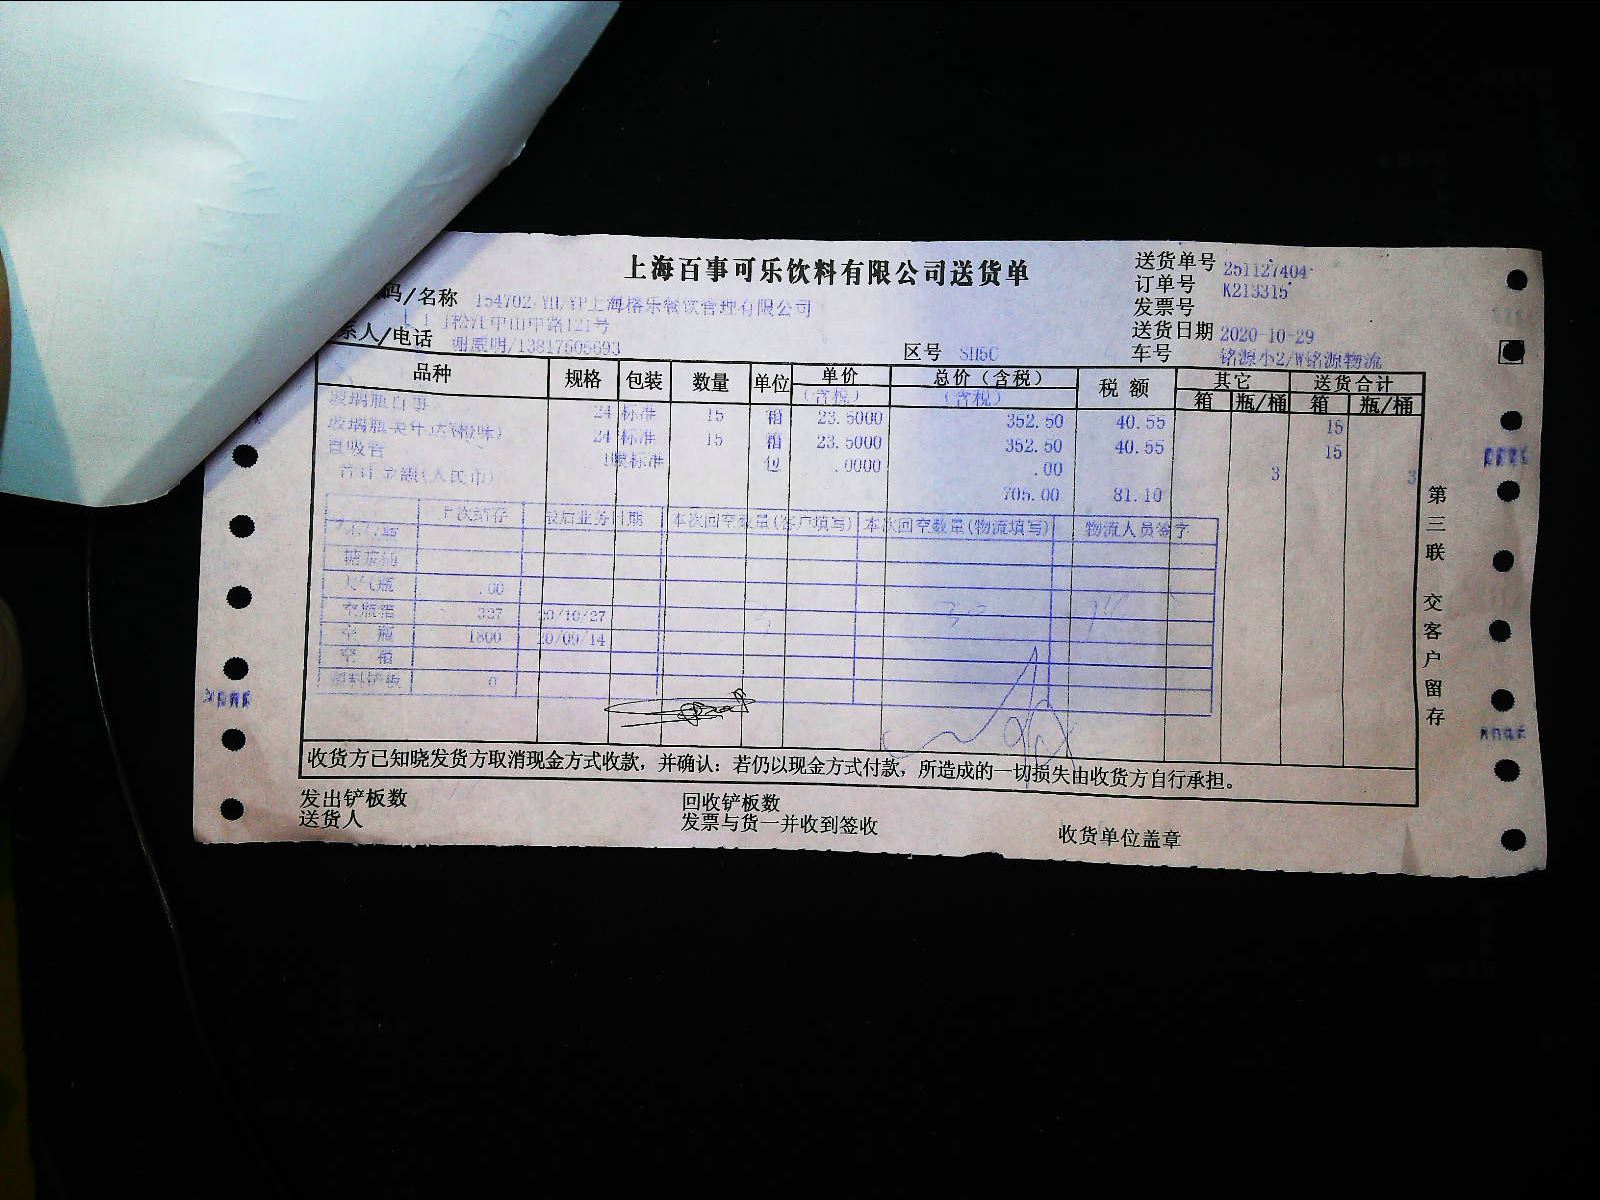 上海百事可乐饮料有限公司送货单
送货单号 251127404
订单号 K213315
发票号
送货日期 2020-10-29
车号 铭源小2/W铭源物流
码/名称 154702/YH/YP上海榕乐餐饮管理有限公司
松江中山中路121号
系人/电话 谢威明/13817505693
区号 SH5C
品种 规格 包装 数量 单位 单价 总价(含税) 税额 其它 送货合计
(含税) (含税) 箱 瓶/桶 箱 瓶/桶
玻璃瓶百事 24 标准 15 箱 23.5000 352.50 40.55 15
玻璃瓶美年达(橙味) 24 标准 15 箱 23.5000 352.50 40.55 15
直吸管 标准 .0000 .00 3 3
合计金额(人民币) 705.00 81.10
上次结存 最后业务日期 本次回空数量(客户填写) 本次回空数量(物流填写) 物流人员签字
糖浆桶
大气瓶 .00
空瓶箱 327 20/10/27
空 瓶 1800 20/09/14
空 箱
0
收货方已知晓发货方取消现金方式收款，并确认：若仍以现金方式付款，所造成的一切损失由收货方自行承担。
发出铲板数 回收铲板数
送货人 发票与货一并收到签收 收货单位盖章
第三联 交客户留存